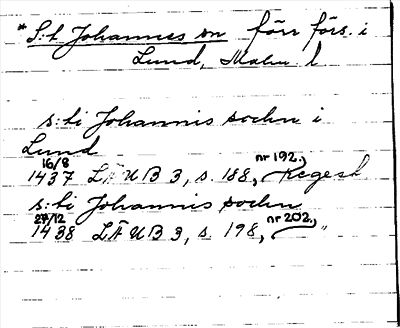 * S:t Johannes sn förr förs. i
Lund, Malm. l
s:ti Johannis sochn i
Lund
16/8
1437 LÄUB 3, s. 188, nr 192., Regest
s:ti Johannis sochn
27/12
1438 LÄUB 3, s. 198, nr 202., "